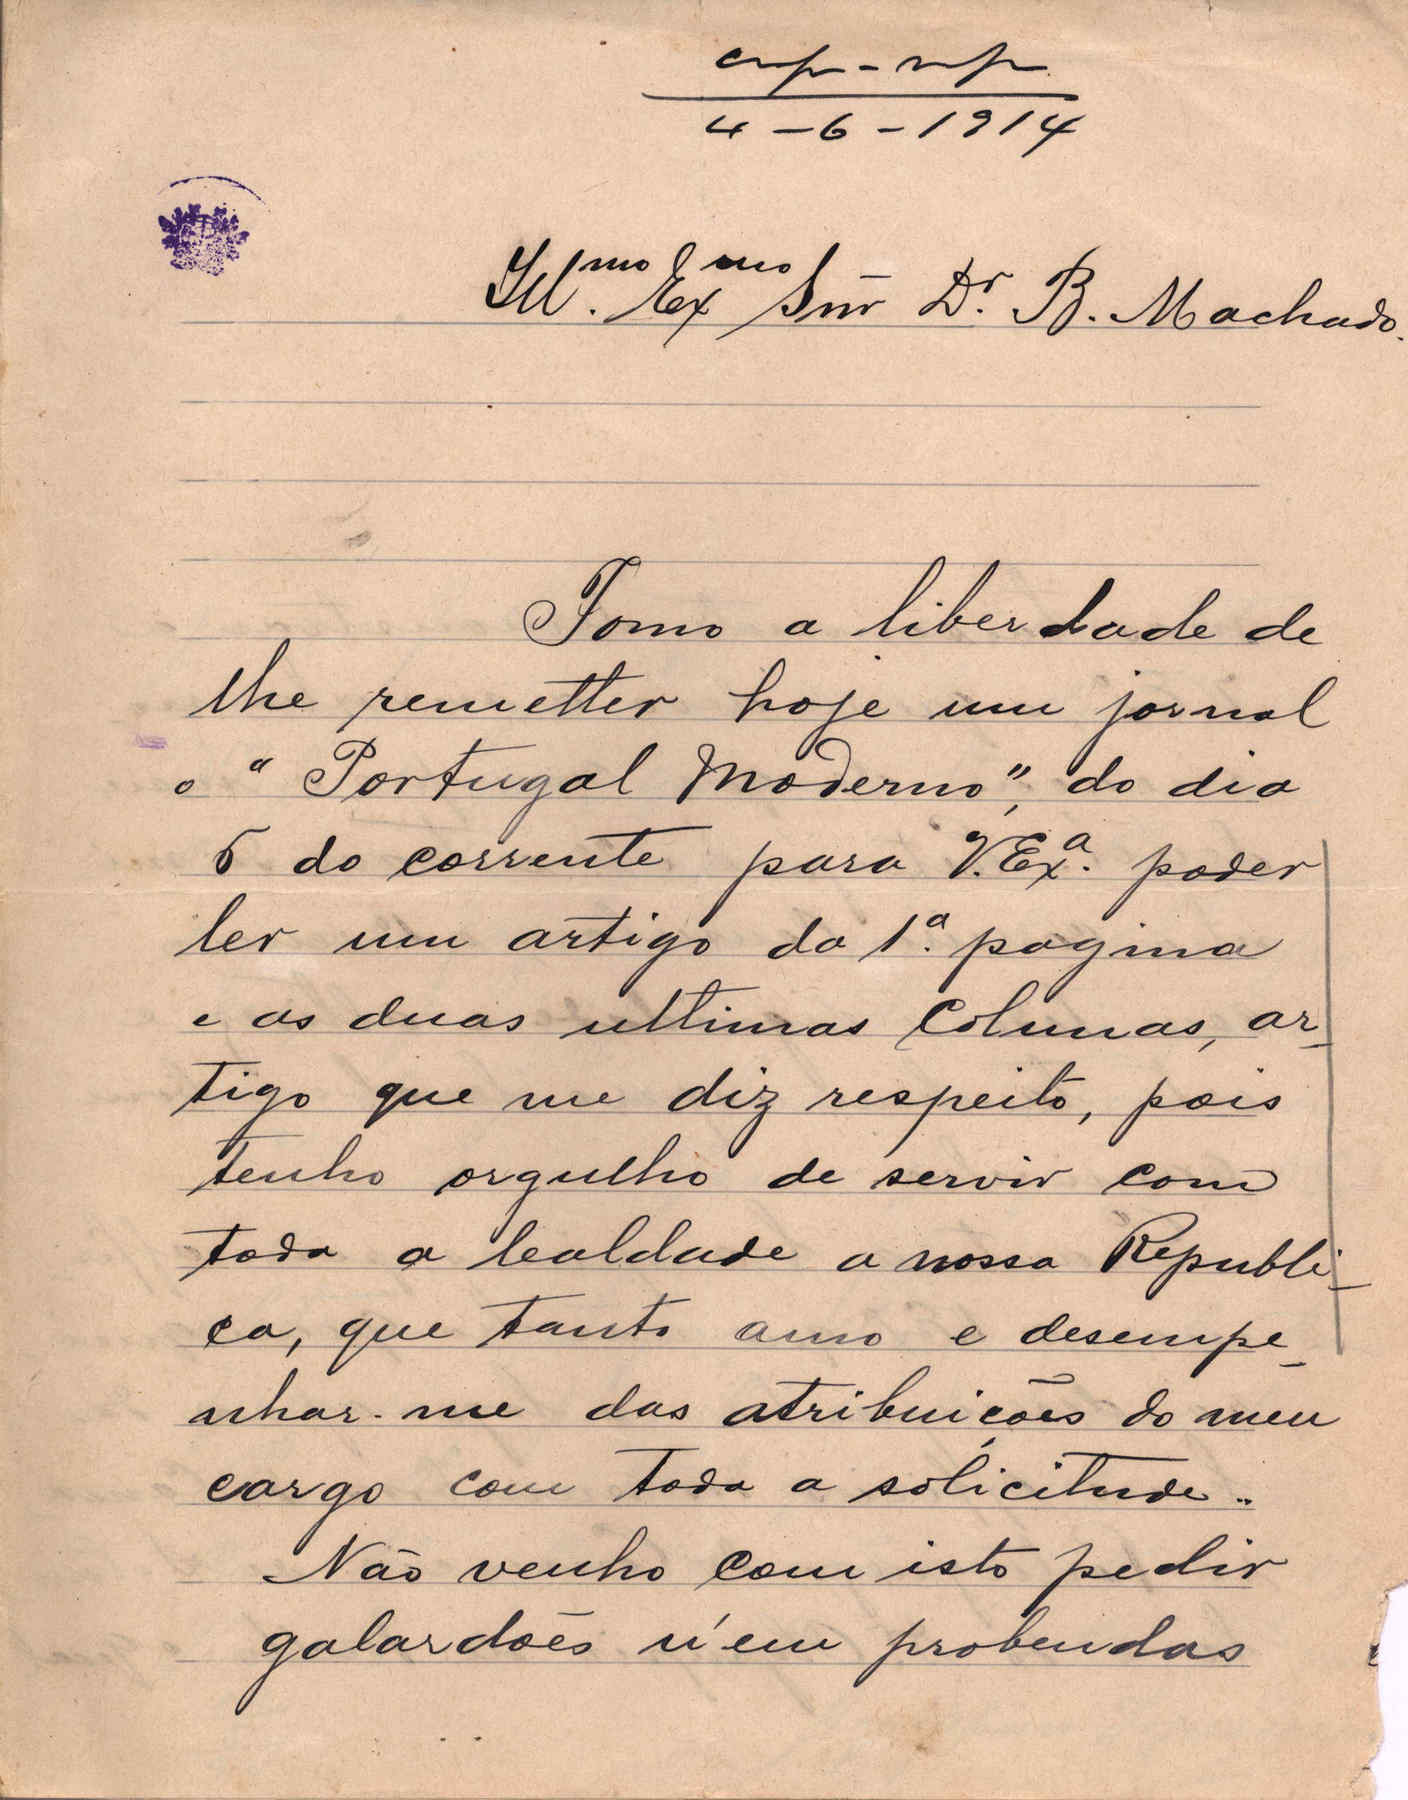 4-6-1914
Ill.mo Ex.mo Snr Dr. B. Machado.
Tomo a liberdade de
lhe remetter hoje um jornal
o "Portugal Moderno", do dia
5 do corrente para V. Ex.a poder
ler um artigo da 1.a pagina
e as duas ultimas columas, ar-
tigo que me diz respeito, pois
tenho orgulho de servir com
toda a lealdade a nossa Republi-
ca, que tanto amo e desempe-
nhar-me das atribuições do meu
cargo com toda a solicitude..
Não venho com isto pedir
galardões n'em probendas